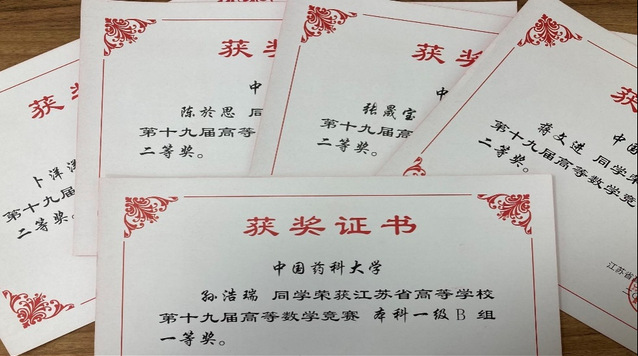 获奖
陈於思 同
第十九届高等
二等奖。
获奖
张晟宝
第十九届高
二等奖。
中国
蒋文进 同学荣
第十九届高等数学竞
二等奖。
江苏省
获
卜洋
第十九届
二等奖。
获奖证书
中国药科大学
孙浩瑞 同学荣获江苏省高等学校
第十九届高等数学竞赛 本科一级 B 组
一等奖。